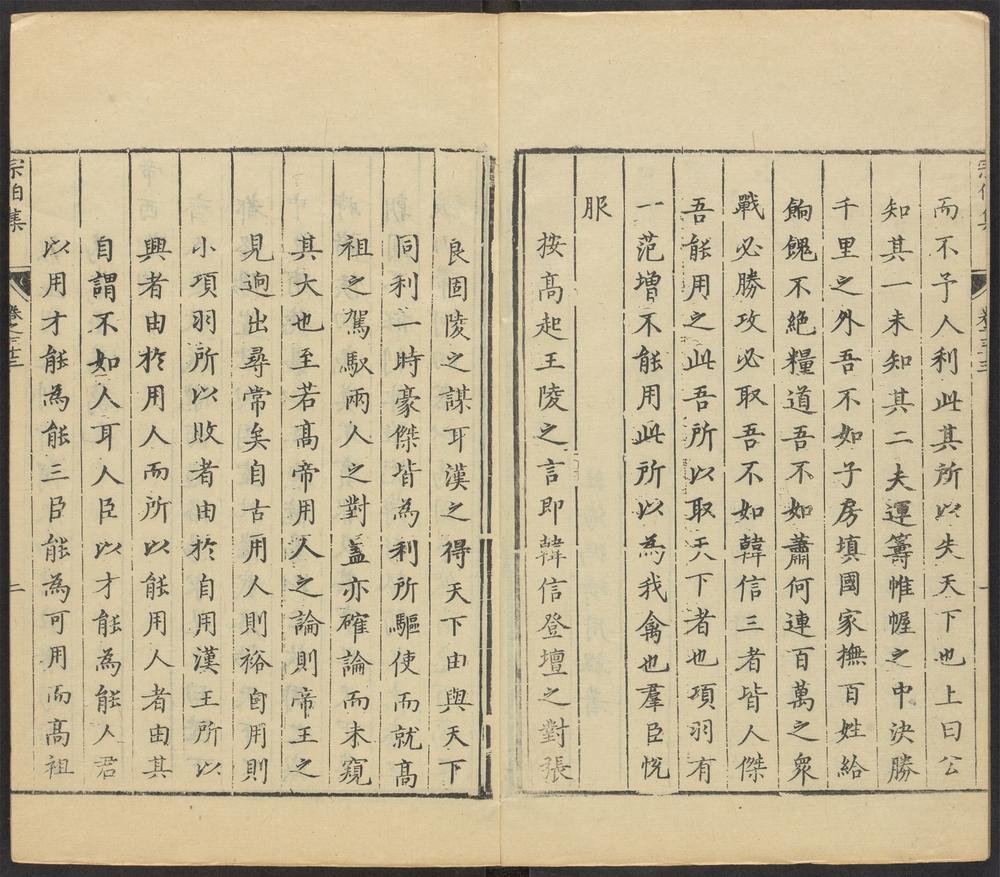 宗伯集
而不予人利此其所以失天下也上曰公
知其一未知其二夫運籌帷幄之中決勝
千里之外吾不如子房填國家撫百姓給
餉餽不絕糧道吾不如蕭何連百萬之衆
戰必勝攻必取吾不如韓信三者皆人傑
吾能用之此吾所以取天下者也項羽有
一范增不能用此所以為我禽也羣臣悅
服
按高起王陵之言即韓信登壇之對張
良固陵之謀耳漢之得天下由與天下
同利一時豪傑皆為利所驅使而就高
祖之駕馭兩人之對蓋亦確論而未窺
其大也至若高帝用人之論則帝王之
見逈出尋常矣自古用人則裕自用則
小項羽所以敗者由於自用漢王所以
興者由於用人而所以能用人者由其
自謂不如人耳人臣以才能為能人君
以用才能為能三臣能為可用而高祖
宗伯集
卷之三十三
二